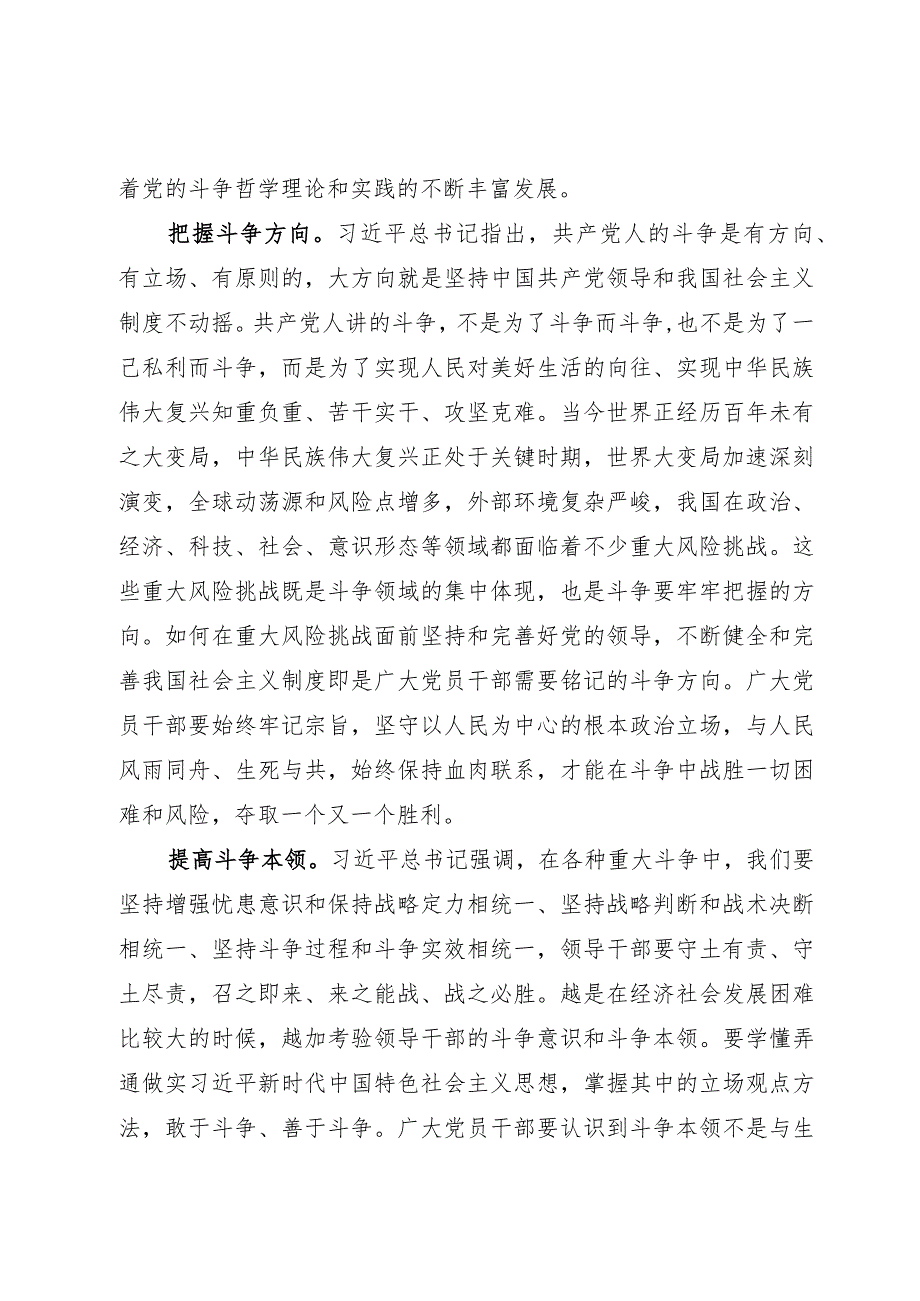 着党的斗争哲学理论和实践的不断丰富发展。
把握斗争方向。习近平总书记指出，共产党人的斗争是有方向、
有立场、有原则的，大方向就是坚持中国共产党领导和我国社会主义
制度不动摇。共产党人讲的斗争，不是为了斗争而斗争,也不是为了一
己私利而斗争，而是为了实现人民对美好生活的向往、实现中华民族
伟大复兴知重负重、苦干实干、攻坚克难。当今世界正经历百年未有
之大变局，中华民族伟大复兴正处于关键时期，世界大变局加速深刻
演变，全球动荡源和风险点增多，外部环境复杂严峻，我国在政治、
经济、科技、社会、意识形态等领域都面临着不少重大风险挑战。这
些重大风险挑战既是斗争领域的集中体现，也是斗争要牢牢把握的方
向。如何在重大风险挑战面前坚持和完善好党的领导，不断健全和完
善我国社会主义制度即是广大党员干部需要铭记的斗争方向。广大党
员干部要始终牢记宗旨，坚守以人民为中心的根本政治立场，与人民
风雨同舟、生死与共，始终保持血肉联系，才能在斗争中战胜一切困
难和风险，夺取一个又一个胜利。
提高斗争本领。习近平总书记强调，在各种重大斗争中，我们要
坚持增强忧患意识和保持战略定力相统一、坚持战略判断和战术决断
相统一、坚持斗争过程和斗争实效相统一，领导干部要守土有责、守
土尽责，召之即来、来之能战、战之必胜。越是在经济社会发展困难
比较大的时候，越加考验领导干部的斗争意识和斗争本领。要学懂弄
通做实习近平新时代中国特色社会主义思想，掌握其中的立场观点方
法，敢于斗争、善于斗争。广大党员干部要认识到斗争本领不是与生